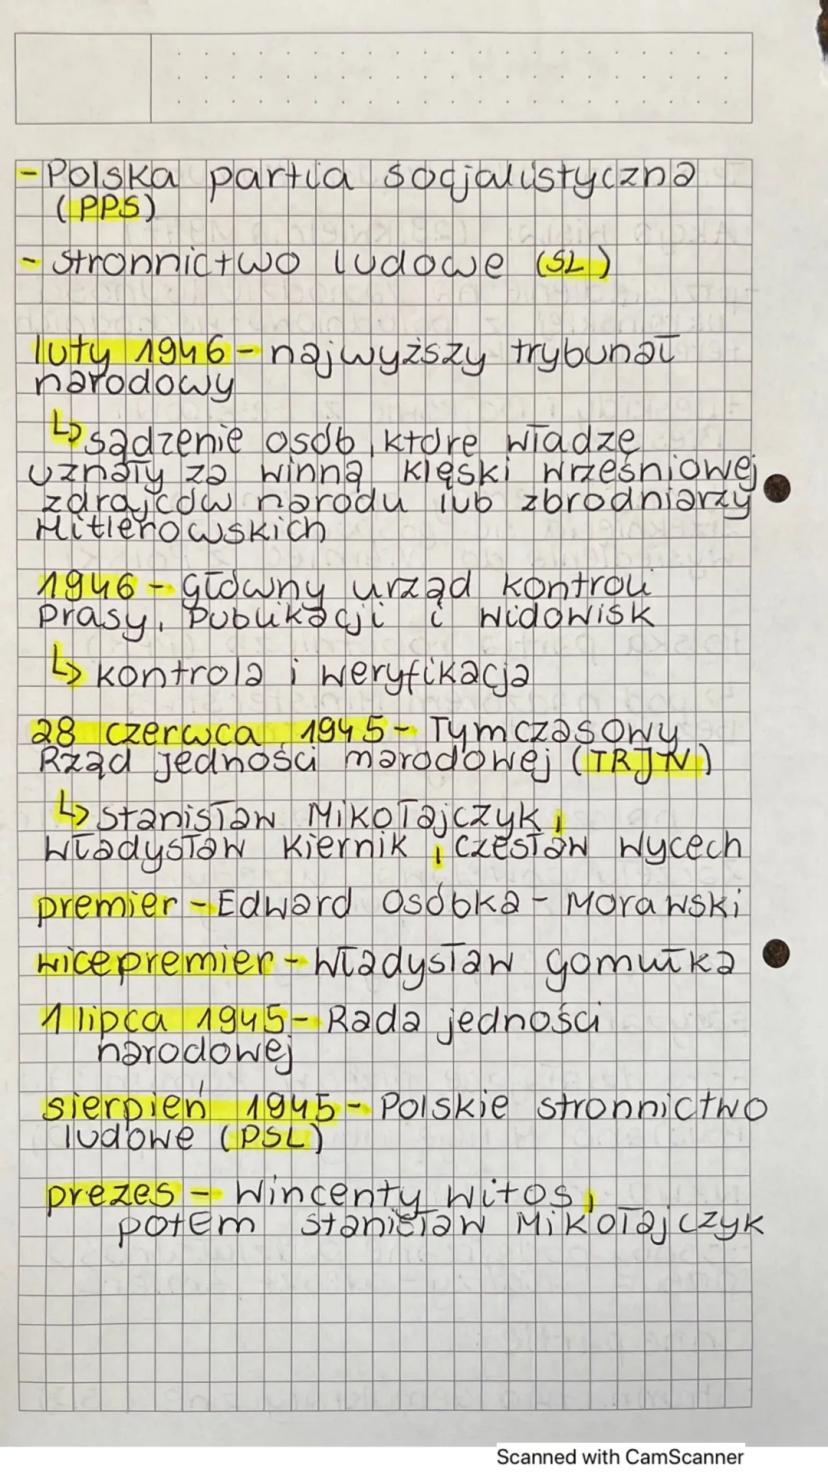 - Polska partia socjalistyczna
(PPS)
- stronnictwo ludowe (SL)
luty 1946 - najwyższy trybunał
narodowy
↳ sądzenie osób, które władze
uznały za winną klęski wrześniowej
zdrajców narodu lub zbrodniarzy
Hitlerowskich
1946 - Główny urząd kontroli
Prasy, Publikacji i Widowisk
↳ kontrola i weryfikacja
28 czerwca 1945 - Tymczasowy
Rząd jedności narodowej (TRJN)
↳ Stanisław Mikołajczyk,
Władysław Kiernik, Czesław Wycech
premier - Edward Osóbka - Morawski
wicepremier - Władysław gomułka
1 lipca 1945 - Rada jedności
narodowej
sierpień 1945 - Polskie stronnictwo
ludowe (PSL)
prezes - Wincenty Witos,
potem Stanisław Mikołajczyk
Scanned with CamScanner